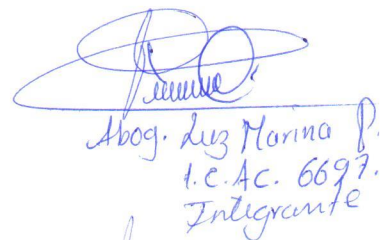 Abog. Luz Marina P.
I.C.AC. 6697.
Integrante